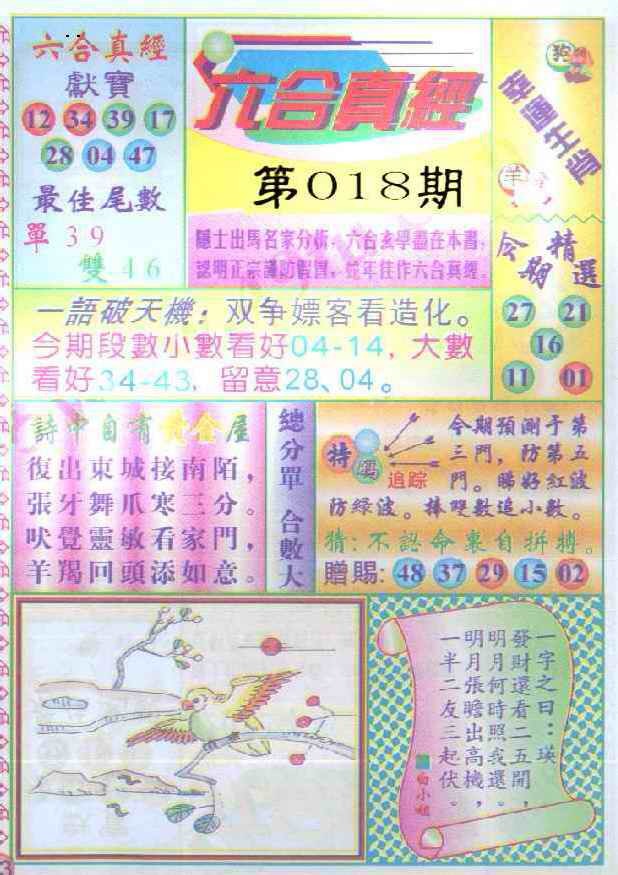 六合真經
獻寶
12 34 39 17
28 04 47
最佳尾數
單 3 9
雙 4 6
六合真經
第018期
隱士出馬名家分析,六合玄學盡在本書,
認明正宗謹防假冒,蛇年佳作六合真經。
狗
幸運生肖
羊
今期
精選
27 21
16
11 01
一語破天機:双争嫖客看造化。
今期段數小數看好04-14,大數
看好34-43,留意28、04。
詩中自有黄金屋
復出東城接南陌,
張牙舞爪寒三分。
吠覺靈敏看家門,
羊羯回頭添如意。
總分單 合數大
特
追踪
今期預測于第
三門,防第五
門。睇好紅波
防綠波。捧雙數追小數。
猜:不認命裏自拼搏。
贈賜:48 37 29 15 02
一字之曰:瑛
發財還看二五開,
明月何時照我還。
明月張瞻出高機,
一半二友三起伏。
白小姐